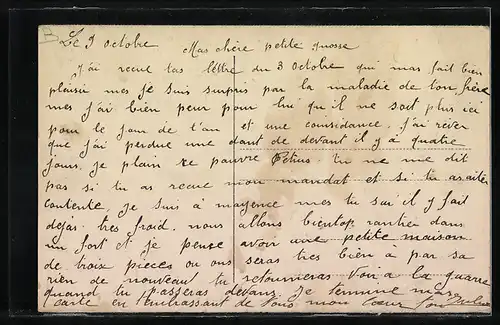 Le 9 octobre Mas chère petite gosse
J'ai recue tas lettre du 3 octobre qui mas fait bien
plaisir mes Je suis surpris par la maladie de ton frère
mes j'ai bien peur pour lui qu'il ne soit plus ici
pour le jour de l'an et une considance. J'ai rêver
que j'ai perdue une dant de devant il y a quatre
jours. je plain ce pauvre tu ne me dit
pas si tu as recue mon mandat et si tu as aitée
contente. Je suis à mayence mes tu sai il y fait
dejas très froid. nous allons bientop rantrée dans
un fort et je pense avoir une petite maison
de troix pieces ou ons seras très bien a par sa
rien de nouveaut tu retourneras voir a la guarre
quand tu passeras devans. Je termine mas
carte en t'embrassant de tous mon cœur ton